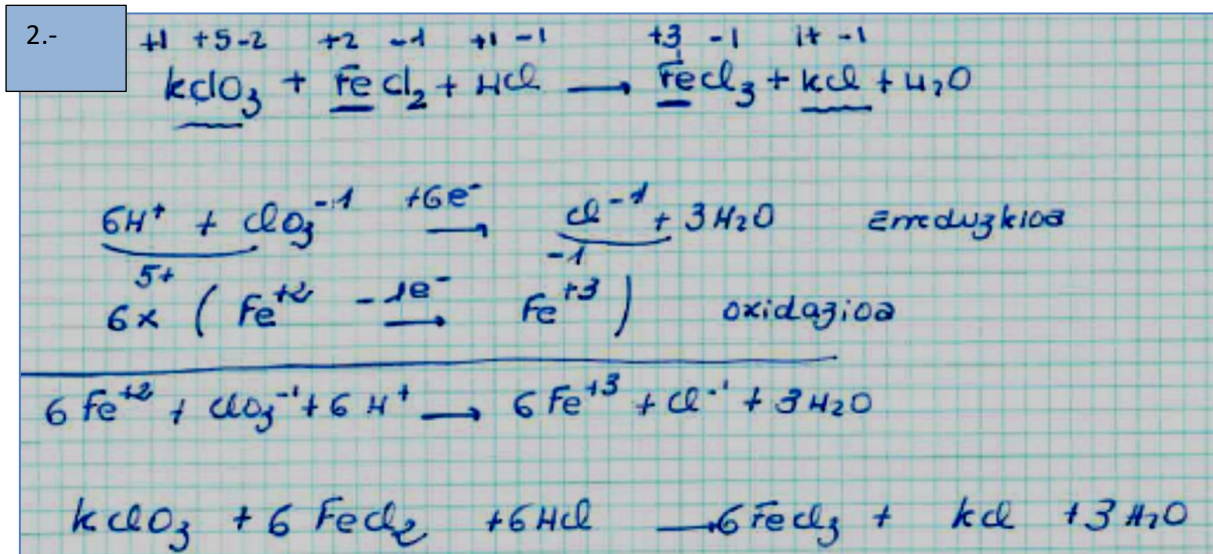 2.-
+1 +5-2 +2 -1 +1 -1 +3 -1 1+ -1
kClO₃ + FeCl₂ + HCl → FeCl₃ + kCl + H₂O
6H⁺ + ClO₃⁻¹ +6e⁻ → Cl⁻¹ + 3H₂O Erreduzkioa
5+ -1
6x ( Fe⁺² -1e⁻ → Fe⁺³ ) oxidazioa
6 Fe⁺² + ClO₃⁻¹ + 6 H⁺ → 6 Fe⁺³ + Cl⁻¹ + 3H₂O
kClO₃ + 6 FeCl₂ +6HCl → 6 FeCl₃ + kCl + 3 H₂O